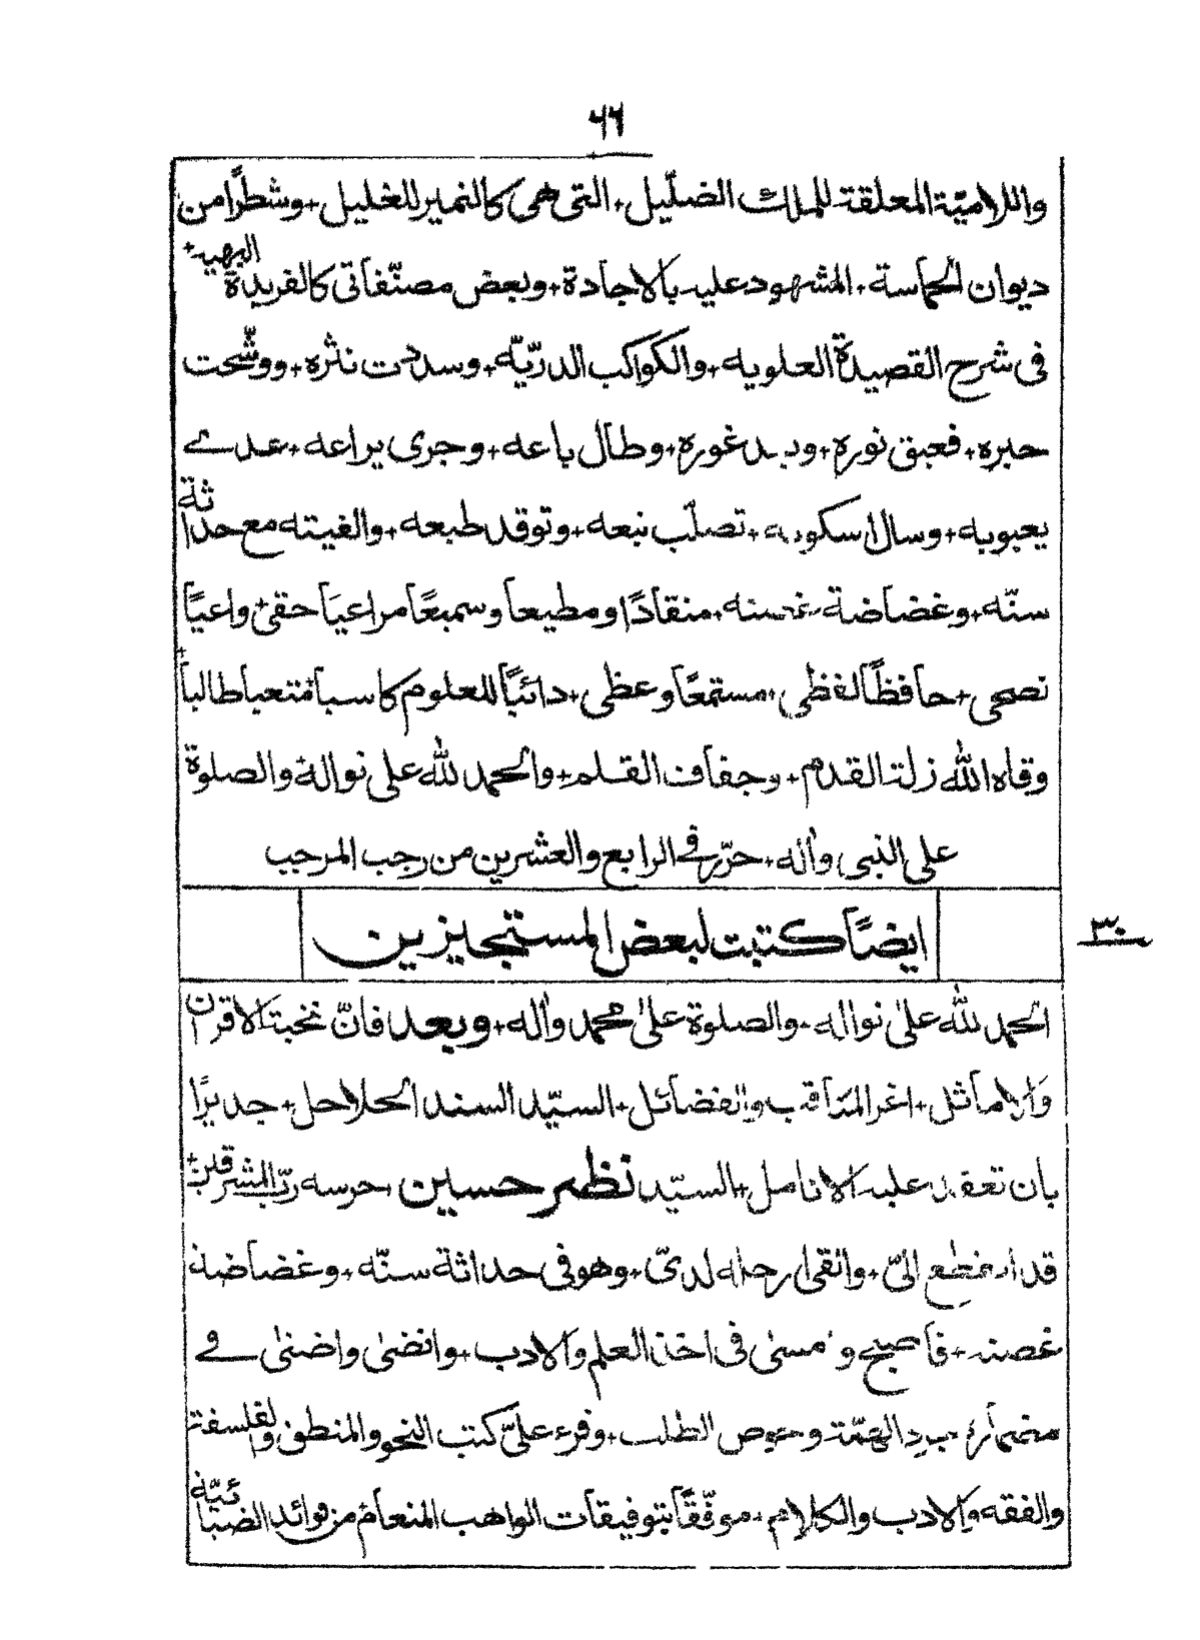 ٦٦
واللاميّة المعلقة للملك الضلّيل + التى هى كالنمير للغليل + وشطرًا من
ديوان الحماسة + المشهود عليه بالاجادة + وبعض مصنّفاتى كالفريدة البهيه +
فى شرح القصيدة العلويه + والكواكب الدرّيّه + وسددت نثره + ووشّحت
حبره + فعبق نوره + وبعد غوره + وطال باعه + وجرى يراعه + عدے
يعبوبه + وسال اسكوبه + تصلّب نبعه + وتوقد طبعه + والفيته مع حداثة
سنّه + وغضاضة غصنه + منقادًا ومطيعا وسميعًا مراعيا حقى + واعيًا
نصحى + حافظًا لفظى + مستمعًا وعظى + دائبًا للعلوم كاسبا متعبا طالبا +
وقاه الله زلة القدم + وجفاف القلم + والحمد لله على نواله + والصلوة
على النبى واٰله + حرّر فے الرابع والعشرين من رجب المرجب
٣٠
ايضًا كتبت لبعض المستجيزين
الحمد لله على نواله + والصلوة على محمد واٰله + وبعد فانّ نخبة الاقران
والاماثل + اغر المناقب والفضائل + السيّد السند الحلاحل + جديرًا
بان تعقد عليه الانامل + السيّد نظر حسين + حرسه ربّ المشرقين +
قد انقطع الىّ + والقى رحله لدىّ + وهو فى حداثة سنّه + وغضاضة
غصنه + فاصبح وامسىٰ فى اخذ العلم والادب + وانضىٰ واضنىٰ فے
الهمّة الطلب + وقرء علىّ كتب النحو والمنطق والفلسفة
والفقه والادب والكلام + موفّقًا بتوفيقات الواهب المنعام + من فوائد الضيائيّة